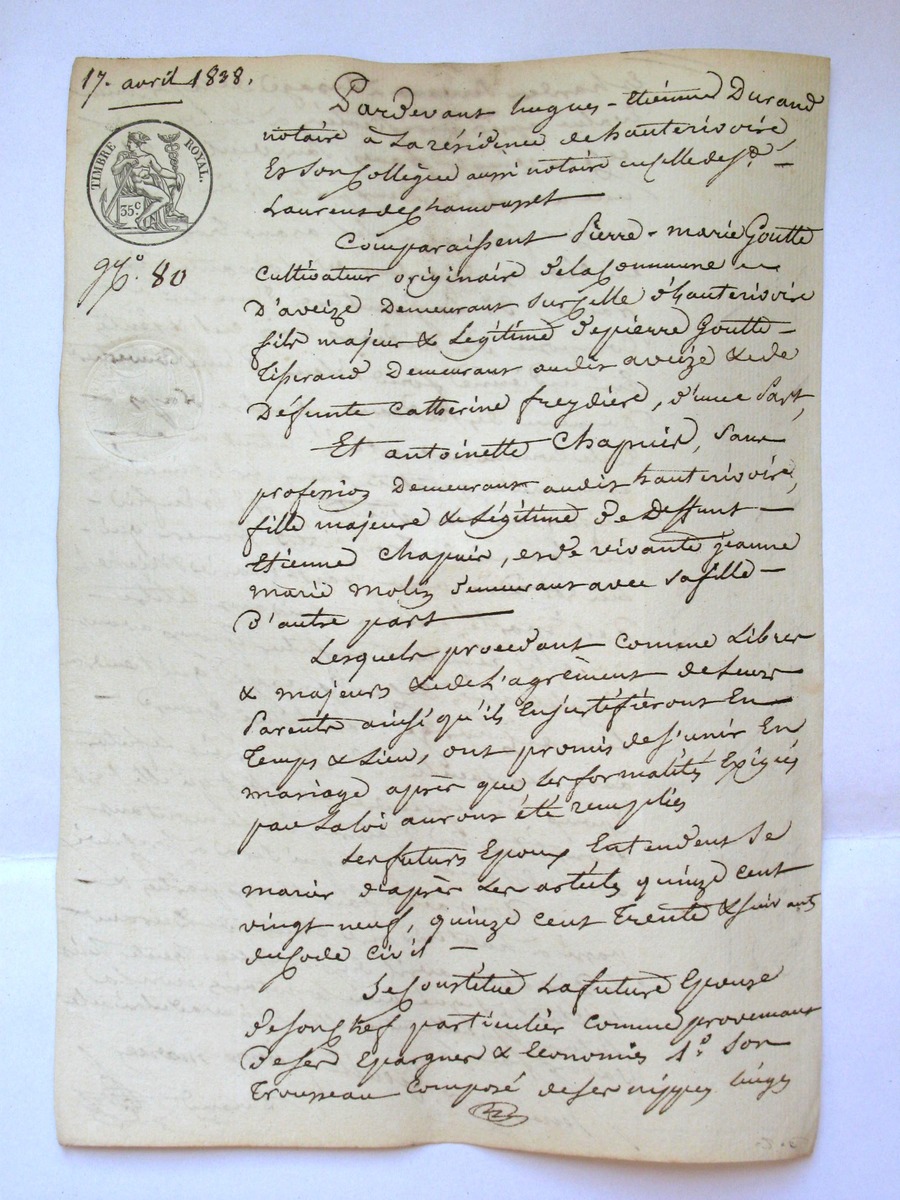 17. avril 1838.
TIMBRE ROYAL.
35.c
N.o 80
Pardevant hugues-etienne Durand
notaire à La résidence de hauterivoire
Et son Collègue aussi notaire en celle de St
Laurent de Chamousset
Comparaissent Pierre-marie Goutte
cultivateur originaire de la Commune
D'aveize Demeurant sur celle d'hauterivoire
fils majeur & Légitime de pierre Goutte
tisserand Demeurant audit aveize & de
Défunte Catherine freydière, d'une Part,
Et antoinette Chapuis, sans
profession Demeurant audit hauterivoire,
fille majeure & Légitime de Deffunt
Etienne Chapuis, et de vivante jeanne
marie molin demeurant avec sa fille
D'autre part
Lesquels procedant comme Libres
& majeurs & de L'agrément de Leurs
Parents ainsi qu'ils En justifieront En
Temps & Lieu, ont promis de s'unir En
mariage après que les formalités Exigées
par La loi auront été remplies
Les futurs Epoux Entendent Se
marier d'après Les articles quinze cent
vingt neuf, quinze cent Trente & suivants
du Code Civil
Se Constitue La future Epouse
de son Chef particulier comme provenant
de ses Epargnes & Economies 1.o Son
Trousseau Composé de ses nippes linges